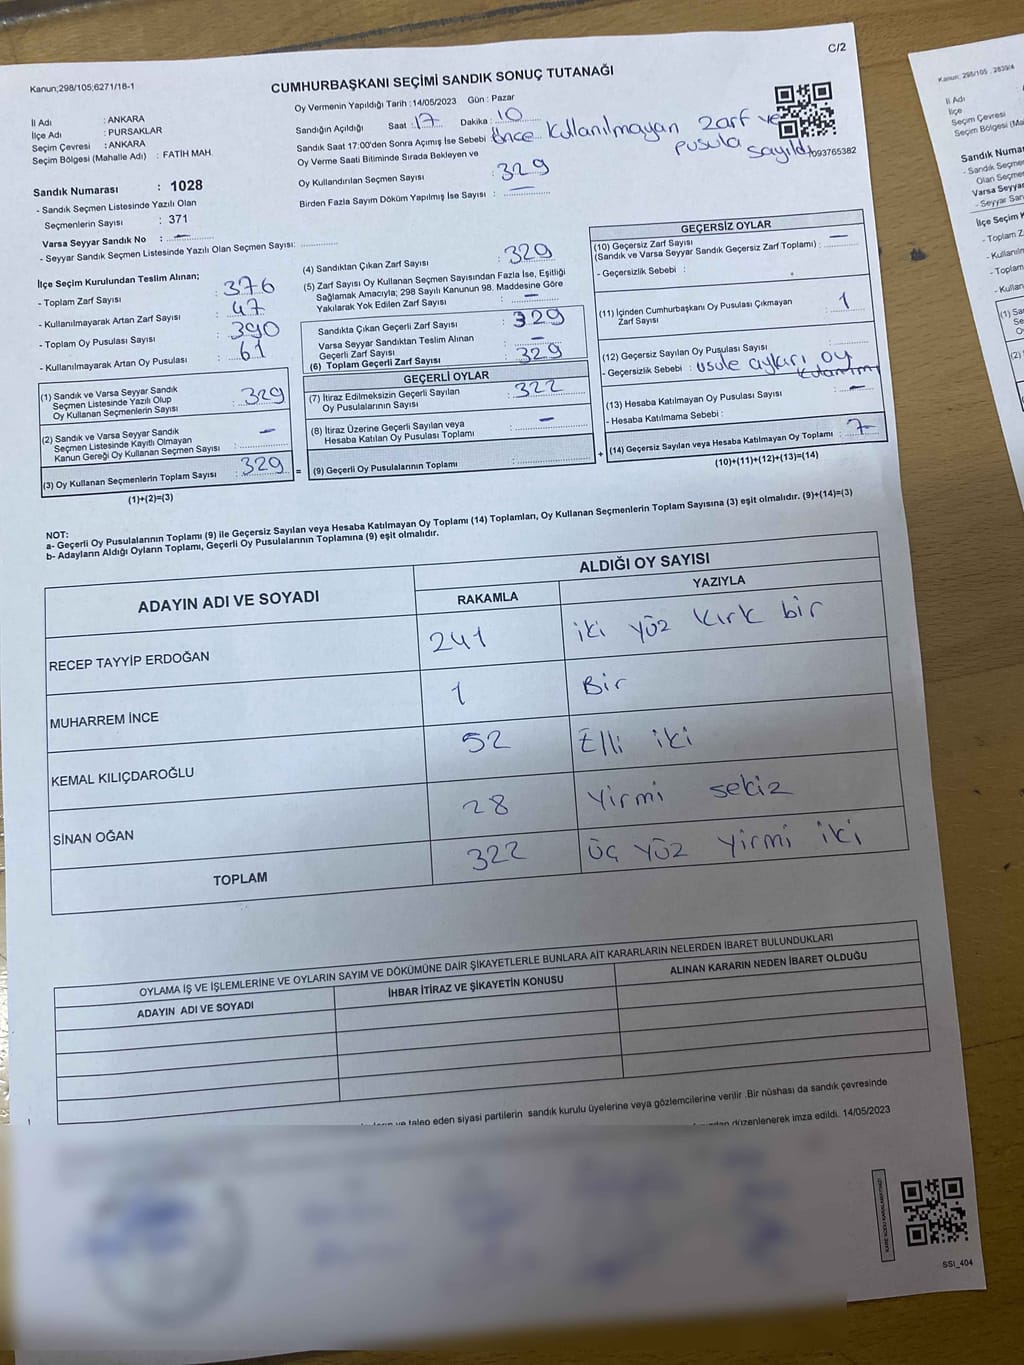 C/2
Kanun;298/105;6271/16-1
CUMHURBAŞKANI SEÇİMİ SANDIK SONUÇ TUTANAĞI
Oy Vermenin Yapıldığı Tarih : 14/05/2023 Gün : Pazar
İl Adı : ANKARA
İlçe Adı : PURSAKLAR
Seçim Çevresi : ANKARA
Seçim Bölgesi (Mahalle Adı) : FATİH MAH.
Sandığın Açıldığı Saat : 17 Dakika : 10
Sandık Saat 17:00'den Sonra Açımış İse Sebebi : Önce kullanılmayan zarf ve pusula sayıldı
093765382
Oy Verme Saati Bitiminde Sırada Bekleyen ve
Oy Kullandırılan Seçmen Sayısı : 329
Birden Fazla Sayım Döküm Yapılmış İse Sayısı : —
Sandık Numarası : 1028
- Sandık Seçmen Listesinde Yazılı Olan
Seçmenlerin Sayısı : 371
Varsa Seyyar Sandık No : —
- Seyyar Sandık Seçmen Listesinde Yazılı Olan Seçmen Sayısı:
İlçe Seçim Kurulundan Teslim Alınan;
- Toplam Zarf Sayısı : 376
- Kullanılmayarak Artan Zarf Sayısı : 47
- Toplam Oy Pusulası Sayısı : 390
- Kullanılmayarak Artan Oy Pusulası : 61
(1) Sandık ve Varsa Seyyar Sandık
Seçmen Listesinde Yazılı Olup
Oy Kullanan Seçmenlerin Sayısı : 329
(2) Sandık ve Varsa Seyyar Sandık
Seçmen Listesinde Kayıtlı Olmayan
Kanun Gereği Oy Kullanan Seçmen Sayısı : —
(3) Oy Kullanan Seçmenlerin Toplam Sayısı : 329
(1)+(2)=(3)
(4) Sandıktan Çıkan Zarf Sayısı : 329
(5) Zarf Sayısı Oy Kullanan Seçmen Sayısından Fazla İse, Eşitliği
Sağlamak Amacıyla; 298 Sayılı Kanunun 98. Maddesine Göre
Yakılarak Yok Edilen Zarf Sayısı : —
Sandıkta Çıkan Geçerli Zarf Sayısı : 329
Varsa Seyyar Sandıktan Teslim Alınan
Geçerli Zarf Sayısı : —
(6) Toplam Geçerli Zarf Sayısı : 329
GEÇERLİ OYLAR
(7) İtiraz Edilmeksizin Geçerli Sayılan
Oy Pusulalarının Sayısı : 322
(8) İtiraz Üzerine Geçerli Sayılan veya
Hesaba Katılan Oy Pusulası Toplamı : —
= (9) Geçerli Oy Pusulalarının Toplamı :
GEÇERSİZ OYLAR
(10) Geçersiz Zarf Sayısı
(Sandık ve Varsa Seyyar Sandık Geçersiz Zarf Toplamı) : —
- Geçersizlik Sebebi :
(11) İçinden Cumhurbaşkanı Oy Pusulası Çıkmayan
Zarf Sayısı : 1
(12) Geçersiz Sayılan Oy Pusulası Sayısı :
- Geçersizlik Sebebi : usule aykırı oy kullanımı
(13) Hesaba Katılmayan Oy Pusulası Sayısı : —
- Hesaba Katılmama Sebebi :
+ (14) Geçersiz Sayılan veya Hesaba Katılmayan Oy Toplamı : 7
(10)+(11)+(12)+(13)=(14)
NOT:
a- Geçerli Oy Pusulalarının Toplamı (9) ile Geçersiz Sayılan veya Hesaba Katılmayan Oy Toplamı (14) Toplamları, Oy Kullanan Seçmenlerin Toplam Sayısına (3) eşit olmalıdır. (9)+(14)=(3)
b- Adayların Aldığı Oyların Toplamı, Geçerli Oy Pusulalarının Toplamına (9) eşit olmalıdır.
ADAYIN ADI VE SOYADI ALDIĞI OY SAYISI
RAKAMLA YAZIYLA
RECEP TAYYİP ERDOĞAN 241 iki yüz kırk bir
MUHARREM İNCE 1 Bir
KEMAL KILIÇDAROĞLU 52 Elli iki
SİNAN OĞAN 28 Yirmi sekiz
TOPLAM 322 Üç yüz yirmi iki
OYLAMA İŞ VE İŞLEMLERİNE VE OYLARIN SAYIM VE DÖKÜMÜNE DAİR ŞİKAYETLERLE BUNLARA AİT KARARLARIN NELERDEN İBARET BULUNDUKLARI
ADAYIN ADI VE SOYADI İHBAR İTİRAZ VE ŞİKAYETİN KONUSU ALINAN KARARIN NEDEN İBARET OLDUĞU
ve talep eden siyasi partilerin sandık kurulu üyelerine veya gözlemcilerine verilir .Bir nüshası da sandık çevresinde
düzenlenerek imza edildi. 14/05/2023
SSI_404
Kanun; 298/105
İl Adı
İlçe
Seçim Çevresi
Seçim Bölgesi (Mah
Sandık Numar
- Sandık Seçme
Olan Seçme
Varsa Seyyar
- Seyyar San
İlçe Seçim K
- Toplam Z
- Kullanılm
- Toplam
- Kullan